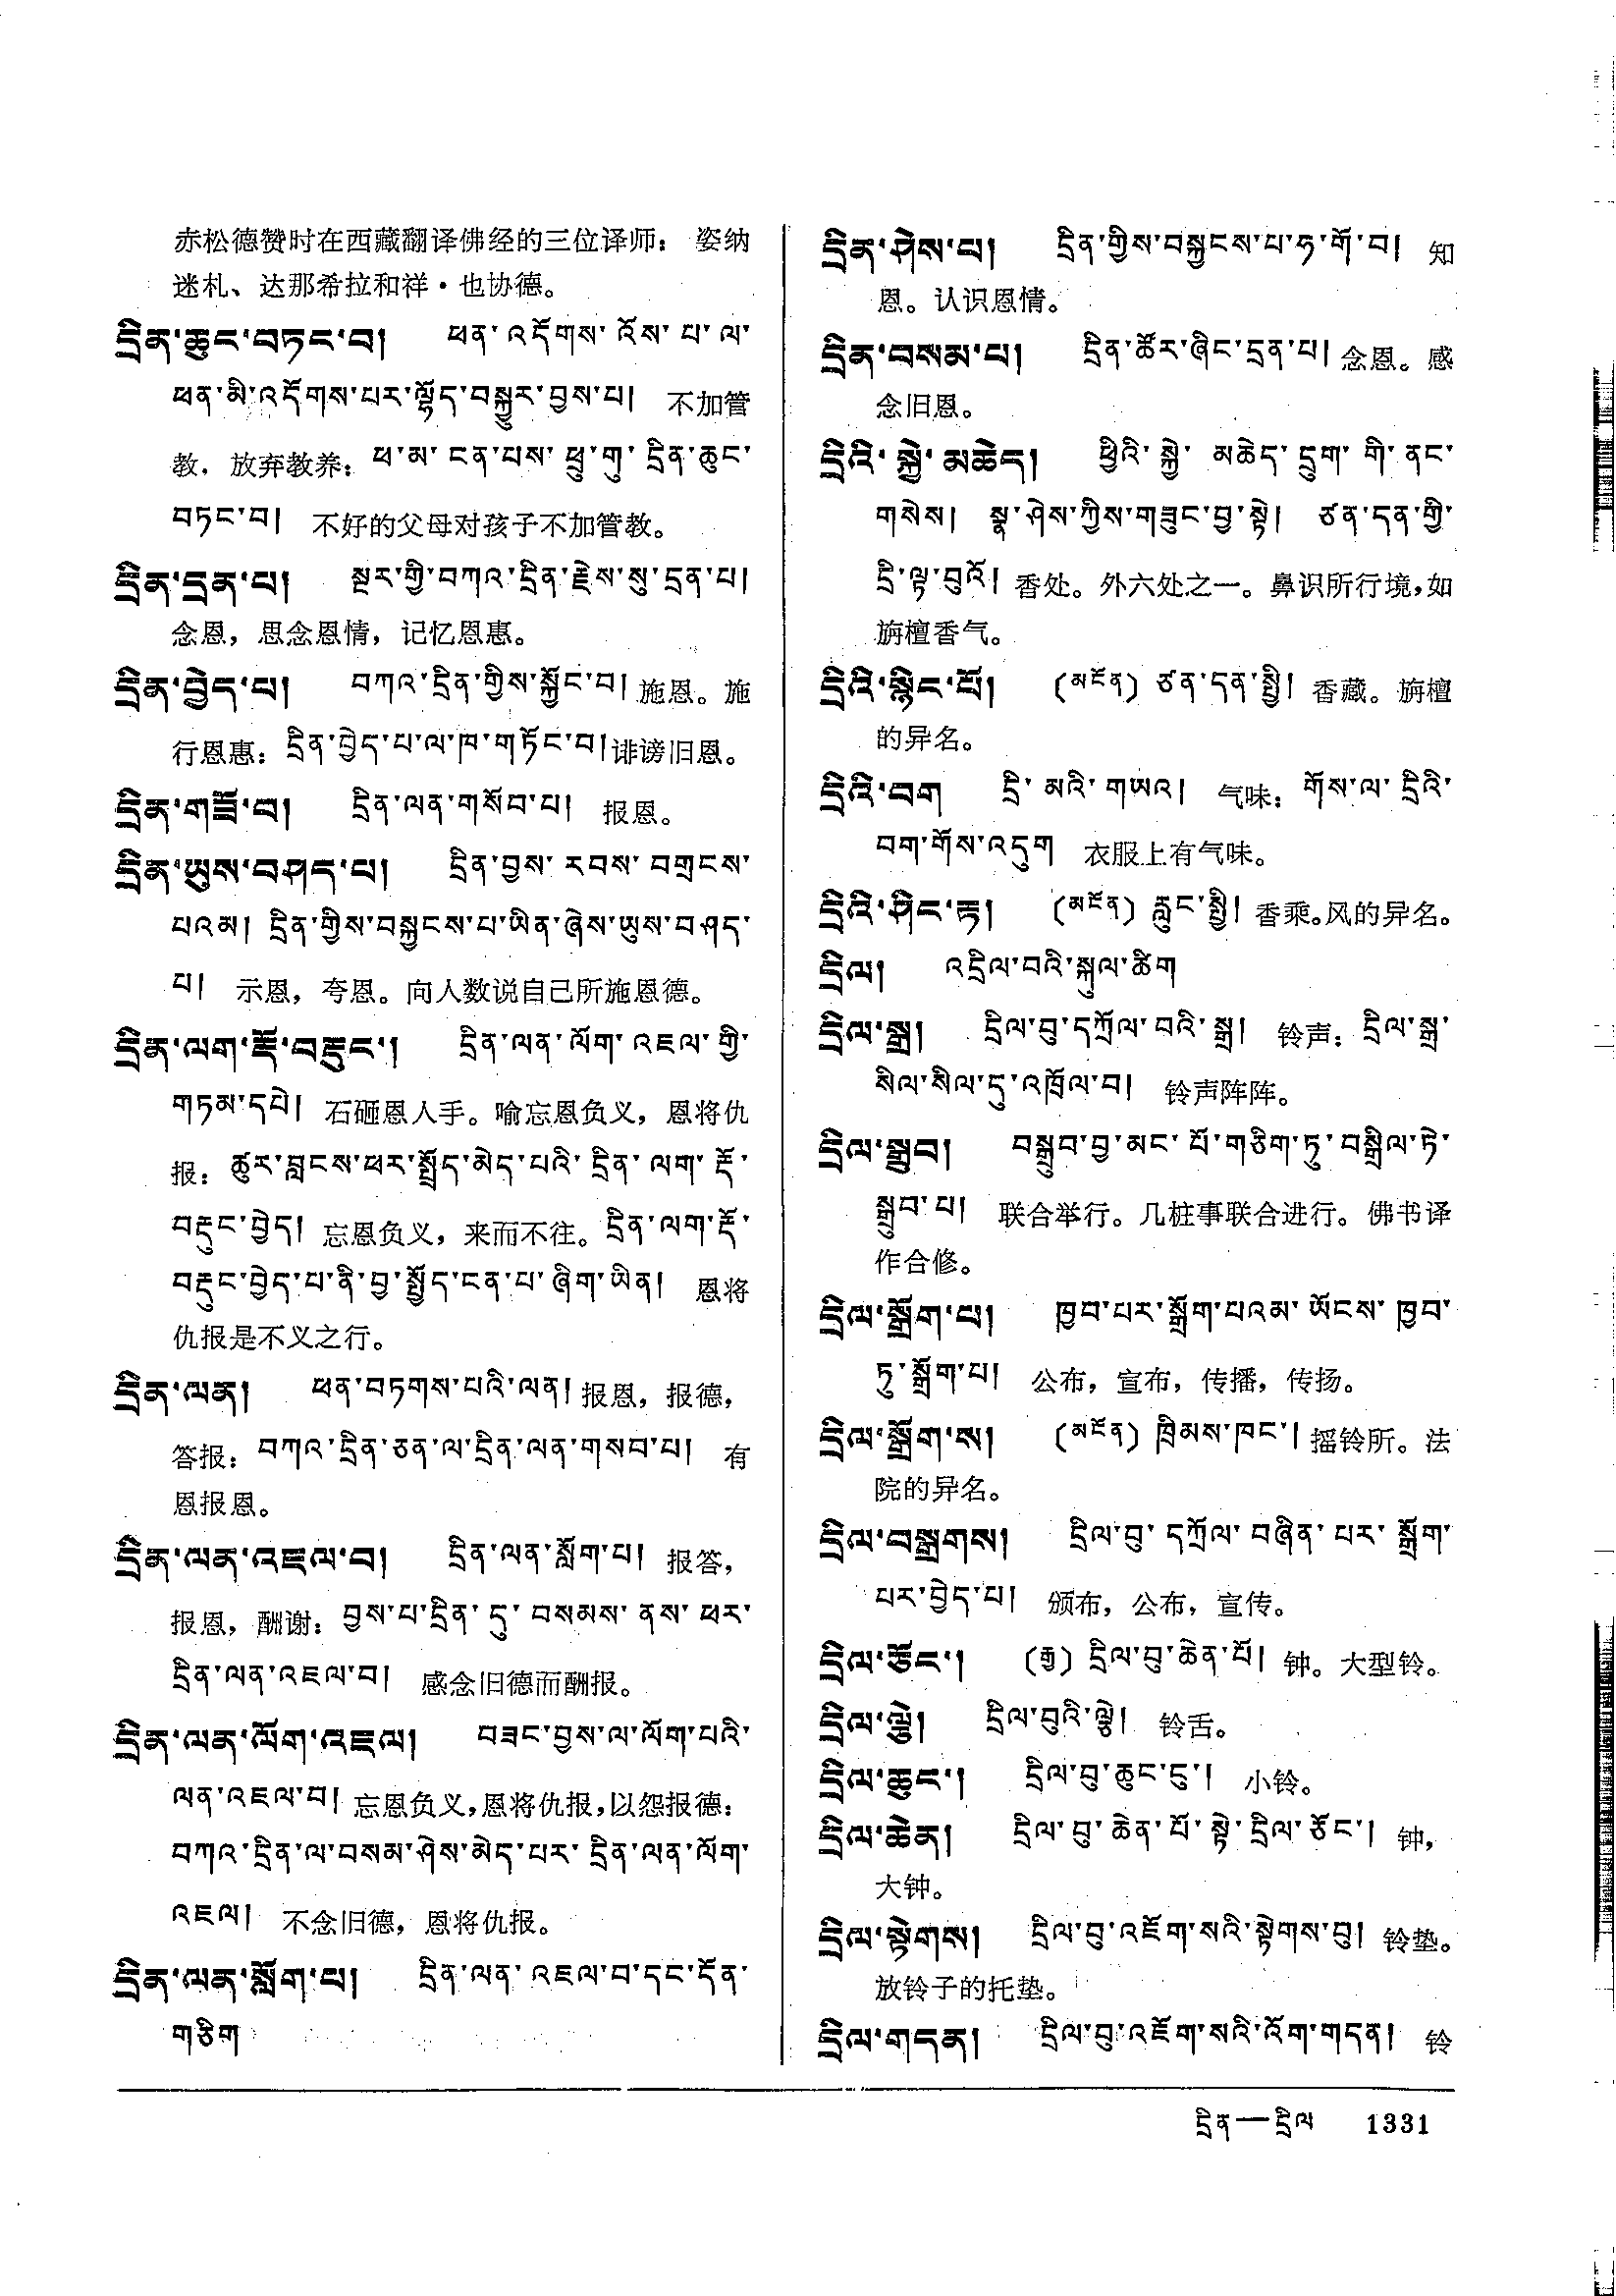 赤松德赞时在西藏翻译佛经的三位译师： 姿纳
迷札、达那希拉和祥·也协德。
དྲིན་ཆུང་བཏང་བ། ཕན་འདོགས་འོས་པ་ལ་
ཕན་མི་འདོགས་པར་ལྷོད་བསྐྱུར་བྱས་པ། 不加管
教，放弃教养：ཕ་མ་ངན་པས་ཕྲུ་གུ་དྲིན་ཆུང་
བཏང་བ། 不好的父母对孩子不加管教。
དྲིན་དྲན་པ། སྔར་གྱི་བཀའ་དྲིན་རྗེས་སུ་དྲན་པ།
念恩，思念恩情，记忆恩惠。
དྲིན་བྱེད་པ། བཀའ་དྲིན་གྱིས་སྐྱོང་བ། 施恩。施
行恩惠：དྲིན་བྱེད་པ་ལ་ཁ་གཏོང་བ།诽谤旧恩。
དྲིན་གཟོ་བ། དྲིན་ལན་གསོབ་པ། 报恩。
དྲིན་ཡུས་བཤད་པ། དྲིན་བྱས་རབས་བགྲངས་
པའམ། དྲིན་གྱིས་བསྐྱངས་པ་ཡིན་ཞེས་ཡུས་བཤད་
པ། 示恩，夸恩。向人数说自己所施恩德。
དྲིན་ལག་རྡོ་བརྡུང་། དྲིན་ལན་ལོག་འཇལ་གྱི་
གཏམ་དཔེ། 石砸恩人手。喻忘恩负义，恩将仇
报：ཚུར་བླངས་ཕར་སྤྲོད་མེད་པའི་དྲིན་ལག་རྡོ་
བརྡུང་བྱེད། 忘恩负义，来而不往。དྲིན་ལག་རྡོ་
བརྡུང་བྱེད་པ་ནི་བྱ་སྤྱོད་ངན་པ་ཞིག་ཡིན། 恩将
仇报是不义之行。
དྲིན་ལན། ཕན་བཏགས་པའི་ལན། 报恩，报德，
答报：བཀའ་དྲིན་ཅན་ལ་དྲིན་ལན་གསབ་པ། 有
恩报恩。
དྲིན་ལན་འཇལ་བ། དྲིན་ལན་སློག་པ། 报答，
报恩，酬谢：བྱས་པ་དྲིན་དུ་བསམས་ནས་ཕར་
དྲིན་ལན་འཇལ་བ། 感念旧德而酬报。
དྲིན་ལན་ལོག་འཇལ། བཟང་བྱས་ལ་ལོག་པའི་
ལན་འཇལ་བ། 忘恩负义，恩将仇报，以怨报德：
བཀའ་དྲིན་ལ་བསམ་ཤེས་མེད་པར་དྲིན་ལན་ལོག་
འཇལ། 不念旧德，恩将仇报。
དྲིན་ལན་སློག་པ། དྲིན་ལན་འཇལ་བ་དང་དོན་
གཅིག
དྲིན་ཤེས་པ། དྲིན་གྱིས་བསྐྱངས་པ་ཧ་གོ་བ། 知
恩。认识恩情。
དྲིན་བསམ་པ། དྲིན་ཚོར་ཞིང་དྲན་པ། 念恩。感
念旧恩。
དྲིའི་སྐྱེ་མཆེད། ཕྱིའི་སྐྱེ་མཆེད་དྲུག་གི་ནང་
གསེས། སྣ་ཤེས་ཀྱིས་གཟུང་བྱ་སྟེ། ཙན་དན་གྱི་
དྲི་ལྟ་བུའོ། 香处。外六处之一。鼻识所行境，如
旃檀香气。
དྲིའི་སྙིང་པོ། (མངོན) ཙན་དན་སྤྱི། 香藏。旃檀
的异名。
དྲིའི་བག དྲི་མའི་གཡའ། 气味：གོས་ལ་དྲིའི་
བག་གོས་འདུག 衣服上有气味。
དྲིའི་ཤིང་རྟ། (མངོན) རླུང་སྤྱི། 香乘。风的异名。
དྲིལ། འདྲིལ་བའི་སྐུལ་ཚིག
དྲིལ་སྒྲ། དྲིལ་བུ་དཀྲོལ་བའི་སྒྲ། 铃声：དྲིལ་སྒྲ་
སིལ་སིལ་དུ་འཁྲོལ་བ། 铃声阵阵。
དྲིལ་སྒྲུབ། བསྒྲུབ་བྱ་མང་པོ་གཅིག་ཏུ་བསྒྲིལ་ཏེ་
སྒྲུབ་པ། 联合举行。几桩事联合进行。佛书译
作合修。
དྲིལ་སྒྲོག་པ། ཁྱབ་པར་སྒྲོག་པའམ་ཡོངས་ཁྱབ་
ཏུ་སྒྲོག་པ། 公布，宣布，传播，传扬。
དྲིལ་སྒྲོག་ས། (མངོན) ཁྲིམས་ཁང་། 摇铃所。法
院的异名。
དྲིལ་བསྒྲགས། དྲིལ་བུ་དཀྲོལ་བཞིན་པར་སྒྲོག་
པར་བྱེད་པ། 颁布，公布，宣传。
དྲིལ་ཅོང་། (རྒྱ) དྲིལ་བུ་ཆེན་པོ། 钟。大型铃。
དྲིལ་ལྕེ། དྲིལ་བུའི་ལྕེ། 铃舌。
དྲིལ་ཆུང་། དྲིལ་བུ་ཆུང་ངུ་། 小铃。
དྲིལ་ཆེན། དྲིལ་བུ་ཆེན་པོ་སྟེ་དྲིལ་ཅོང་། 钟，
大钟。
དྲིལ་སྟེགས། དྲིལ་བུ་འཇོག་སའི་སྟེགས་བུ། 铃垫。
放铃子的托垫。
དྲིལ་གདན། དྲིལ་བུ་འཇོག་སའི་འོག་གདན། 铃
དྲིན—དྲིལ 1331